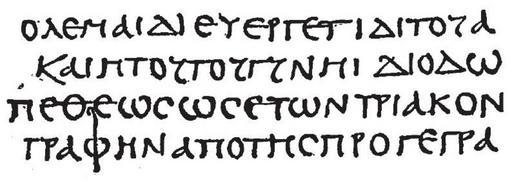 ολεμαιδιευεργετιδιτουα
καιητουτουγυνηι διοδω
πεθεωϲωϲετωντριακον
γραφηναποτηϲπρογεγρα